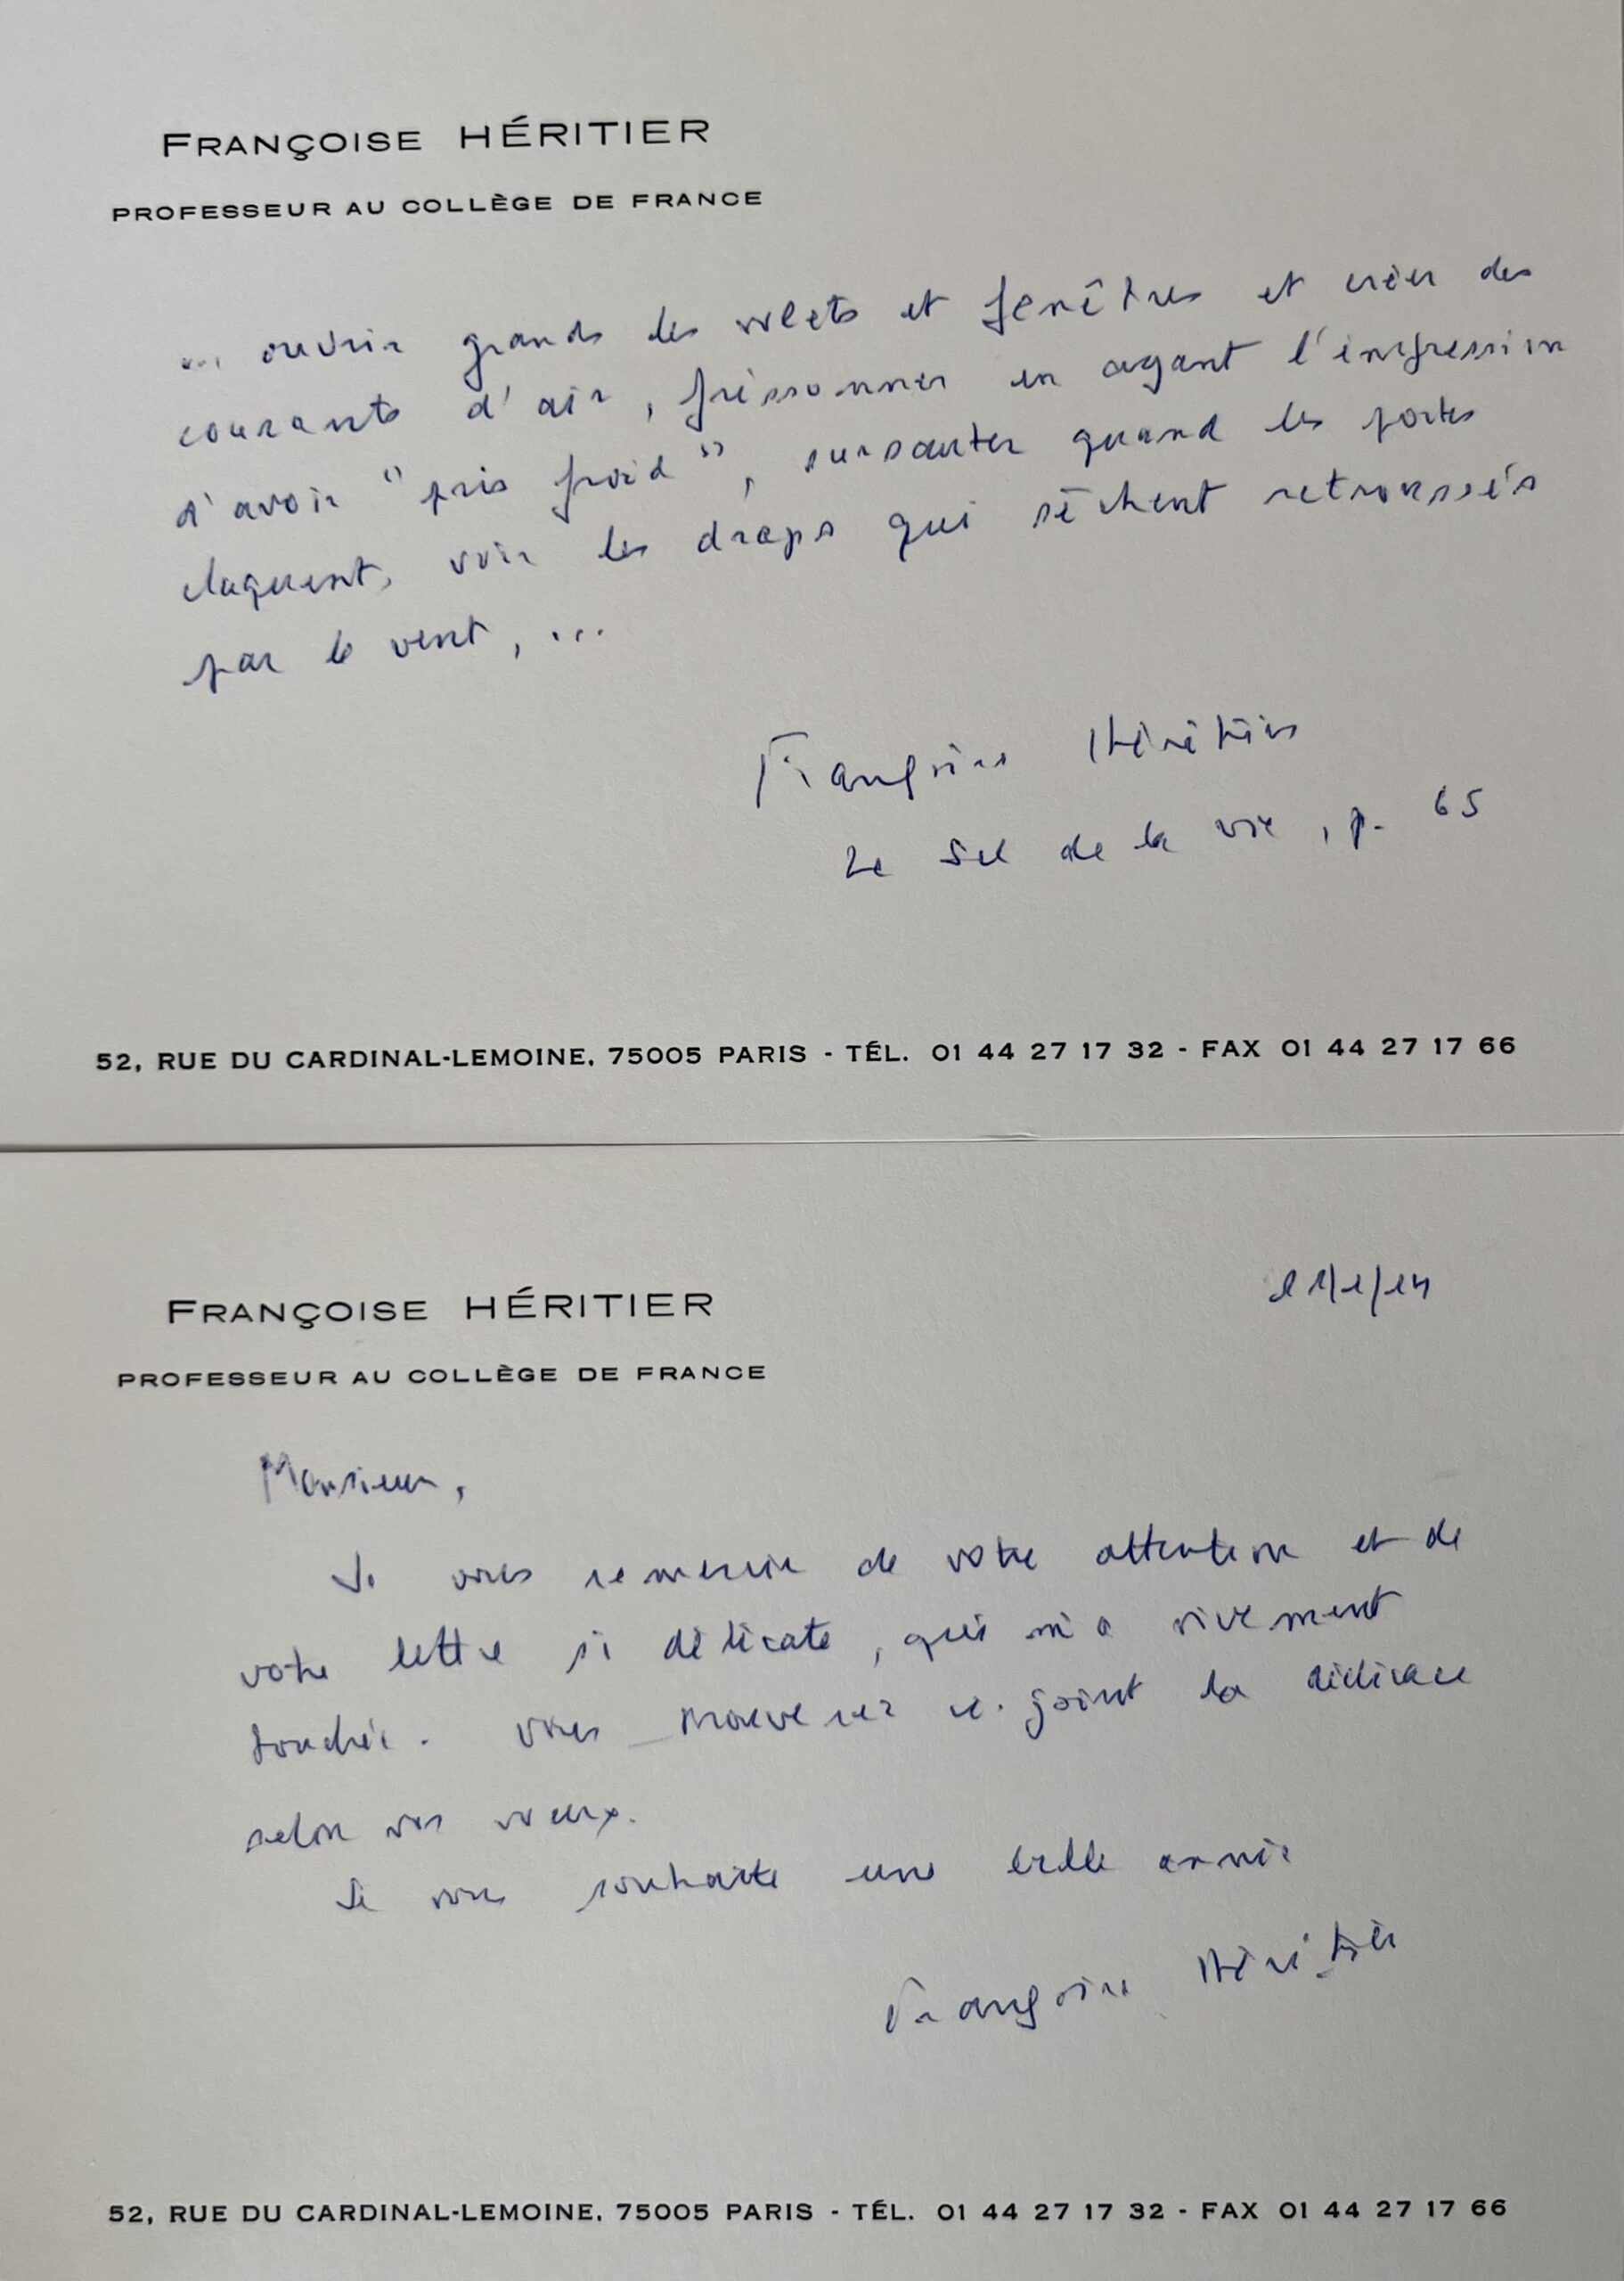 FRANÇOISE HÉRITIER
PROFESSEUR AU COLLÈGE DE FRANCE
... ouvrir grands les volets et fenêtres et créer des
courants d'air, frissonner en ayant l'impression
d'avoir "pris froid", sursauter quand les portes
claquent, voir les draps qui sèchent retroussés
par le vent, ...
Françoise Héritier
Le Sel de la vie, p. 65
52, RUE DU CARDINAL-LEMOINE, 75005 PARIS - TÉL. 01 44 27 17 32 - FAX 01 44 27 17 66
FRANÇOISE HÉRITIER
PROFESSEUR AU COLLÈGE DE FRANCE
Monsieur,
Je vous remercie de votre attention et de
votre lettre si délicate, qui m'a vivement
touchée. Vous trouverez ci-joint la dédicace
selon vos voeux.
Je vous souhaite une belle année
Françoise Héritier
52, RUE DU CARDINAL-LEMOINE, 75005 PARIS - TÉL. 01 44 27 17 32 - FAX 01 44 27 17 66